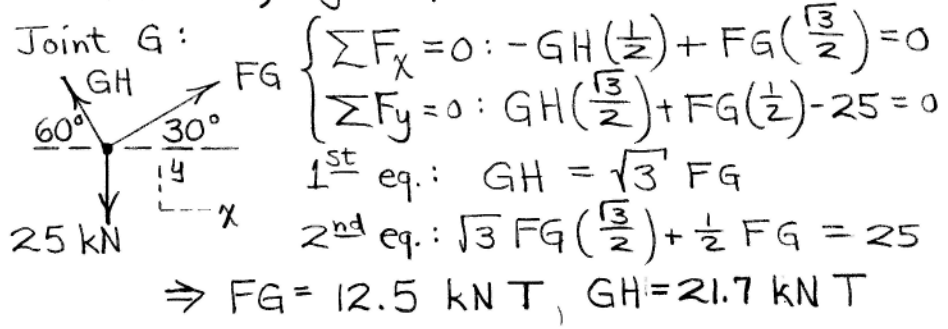 Joint G:
GH
FG
60°
30°
y
x
25 kN
ΣFx = 0: -GH(1/2) + FG(√3/2) = 0
ΣFy = 0: GH(√3/2) + FG(1/2) - 25 = 0
1st eq.: GH = √3 FG
2nd eq.: √3 FG(√3/2) + 1/2 FG = 25
⇒ FG = 12.5 kN T, GH = 21.7 kN T